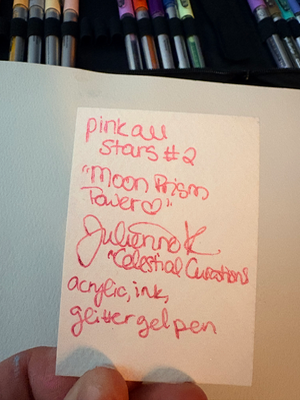 pink all
stars #2
"Moon Prism
Power♡"
Julienne K
"Celestial Curations
acrylic, ink,
glitter gel pen